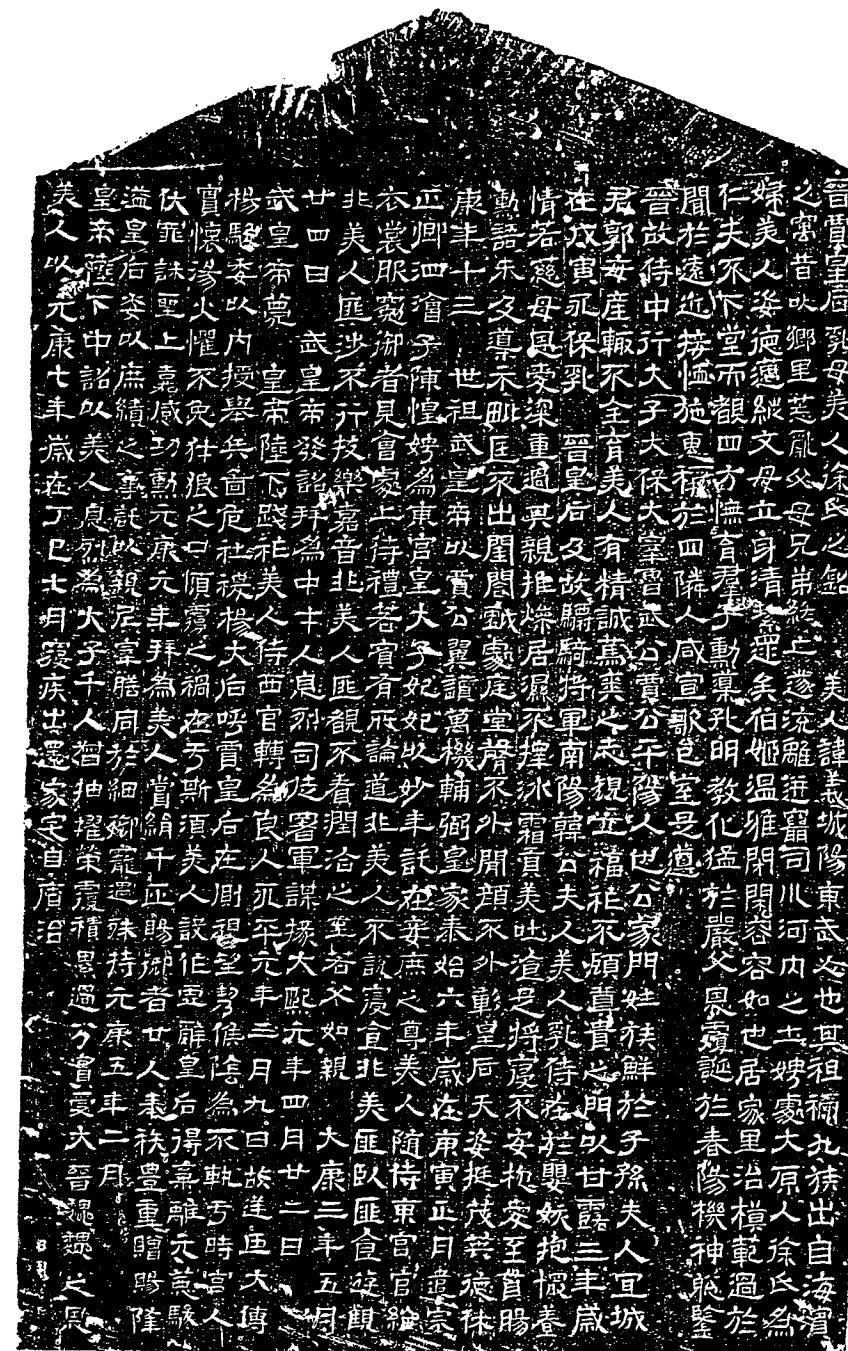 晉賈皇后乳母美人徐氏之銘 美人諱義城陽東武人也其祖禰九族出自海濱
之寓昔以鄉里荒亂父母兄弟終亡遂流離迸竄司川河內之土娉處大原人徐氏為
婦美人姿德邁縱文母立身清盈足矣伯姬溫雅閑閑容容如也居家里治模範過於
仁夫不下堂而覩四方憮育羣子勳纂孔明教化猛於嚴父恩覆誕於春陽機神聰鑒
聞於遠近接恤施惠稱於四隣人咸宣歌邑室是遵
晉故侍中行大子大保大宰魯武公賈公平陽人也公家門姓族鮮於子孫夫人宜城
君郭每產輒不全育美人有精誠蔦真之志規立福祚不顧尊貴之門以甘露三年歲
在戊寅永保乳 晉皇后及故驃騎將軍南陽韓公夫人美人乳侍在於嬰妖抱懷養
情若慈母恩愛深重過其親推燥居濕不擇冰霜貢美吐滄是將寢不安枕愛至貫腸
勳語未及導示毗匡不出閨閤戲處庭堂聲不外聞顏不外彰皇后天姿挺茂英德休
康年十三 世祖武皇帝以賈公翼讚萬機輔弼皇家泰始六年歲在庚寅正月遣宗
正卿泗澮子陳惶娉為東宮皇大子妃妃以妙年託在妾庶之尊美人隨侍東宮官給
衣裳服冕御者見會處上待禮若賓有所論道非美人不說寢食非美匪臥匪食遊觀
非美人匪涉不行技樂嘉音非美人匪覩不看潤洽之至若父如親 大康三年五月
廿四日 武皇帝發詔拜為中才人息烈司徒署軍謀掾大熙元年四月廿二日
武皇帝薨 皇帝陛下踐祚美人侍西宮轉為良人永平元年三月九日故逆臣大傅
楊駿委以內授舉兵啚危社稷楊大后呼賈皇后在側視望智候陰為不軌于時宮人
實懷湯火懼不免豺狼之口傾覆之禍在于斯須美人設作虛辭皇后得棄離元惡駿
伏罪誅聖上嘉感功勳元康元年拜為美人賞絹千匹賜御者廿人奉秩豊重贈賜隆
溢皇后委以庶績之事託以親尼宰膳同於細御寵遇殊特元康五年二月
皇帝陛下中詔以美人息烈為大子千人督抽擢榮覆積恩過分實受大晉魏魏之恩
美人以元康七年歲在丁巳七月寢疾出還家宅自療治